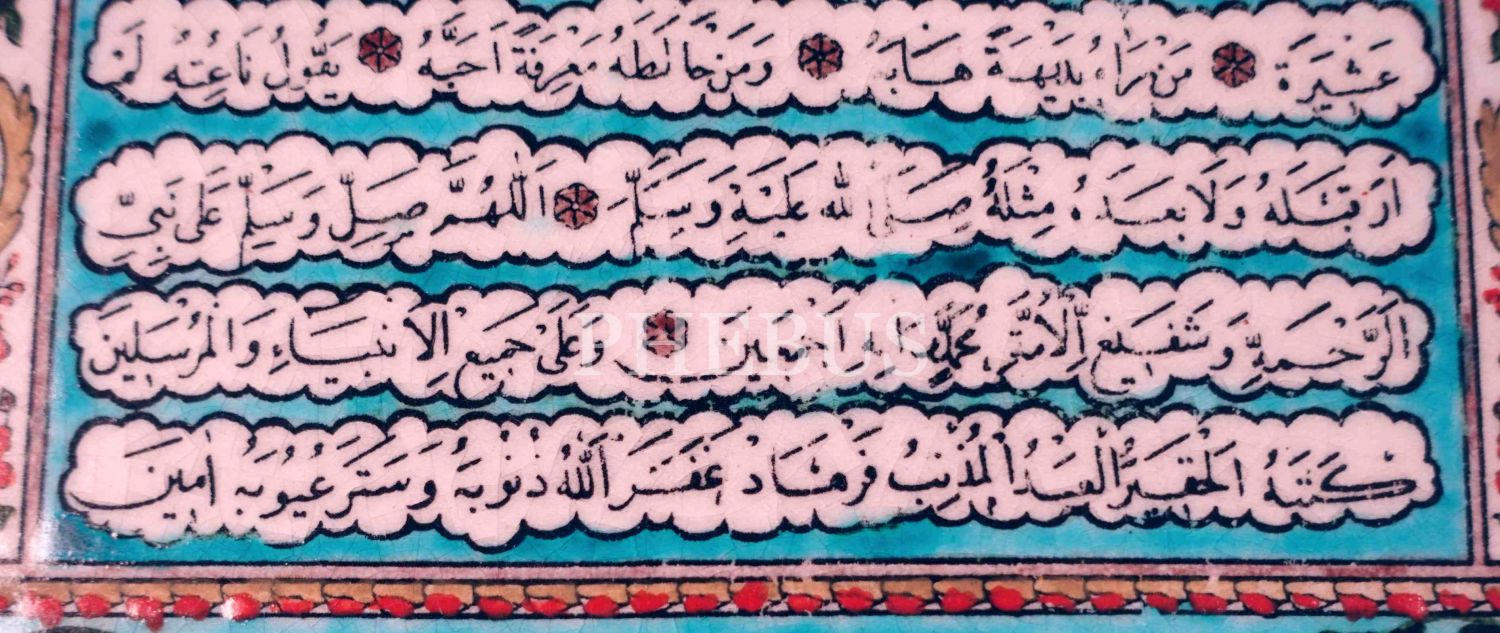 عَشِيرَةً ۞ مَنْ رَاٰهُ بَدِيهَةً هَابَهُ ۞ وَمَنْ خَالَطَهُ مَعْرِفَةً اَحَبَّهُ ۞ يَقُولُ نَاعِتُهُ لَمْ
اَرَ قَبْلَهُ وَلَا بَعْدَهُ مِثْلَهُ صَلَّى اللّٰهُ عَلَيْهِ وَسَلَّمَ ۞ اَللّٰهُمَّ صَلِّ وَسَلِّمْ عَلٰى نَبِيِّ
الرَّحْمَةِ وَشَفِيعِ الْاُمَّةِ مُحَمَّدٍ وَاٰلِهِ اَجْمَعِينَ ۞ وَعَلٰى جَمِيعِ الْاَنْبِيَاءِ وَالْمُرْسَلِينَ
كَتَبَهُ الْحَقِيرُ الْعَبْدُ الْمُذْنِبُ فَرْهَادْ غَفَرَ اللّٰهُ ذُنُوبَهُ وَسَتَرَ عُيُوبَهُ اٰمِينَ
PHEBUS